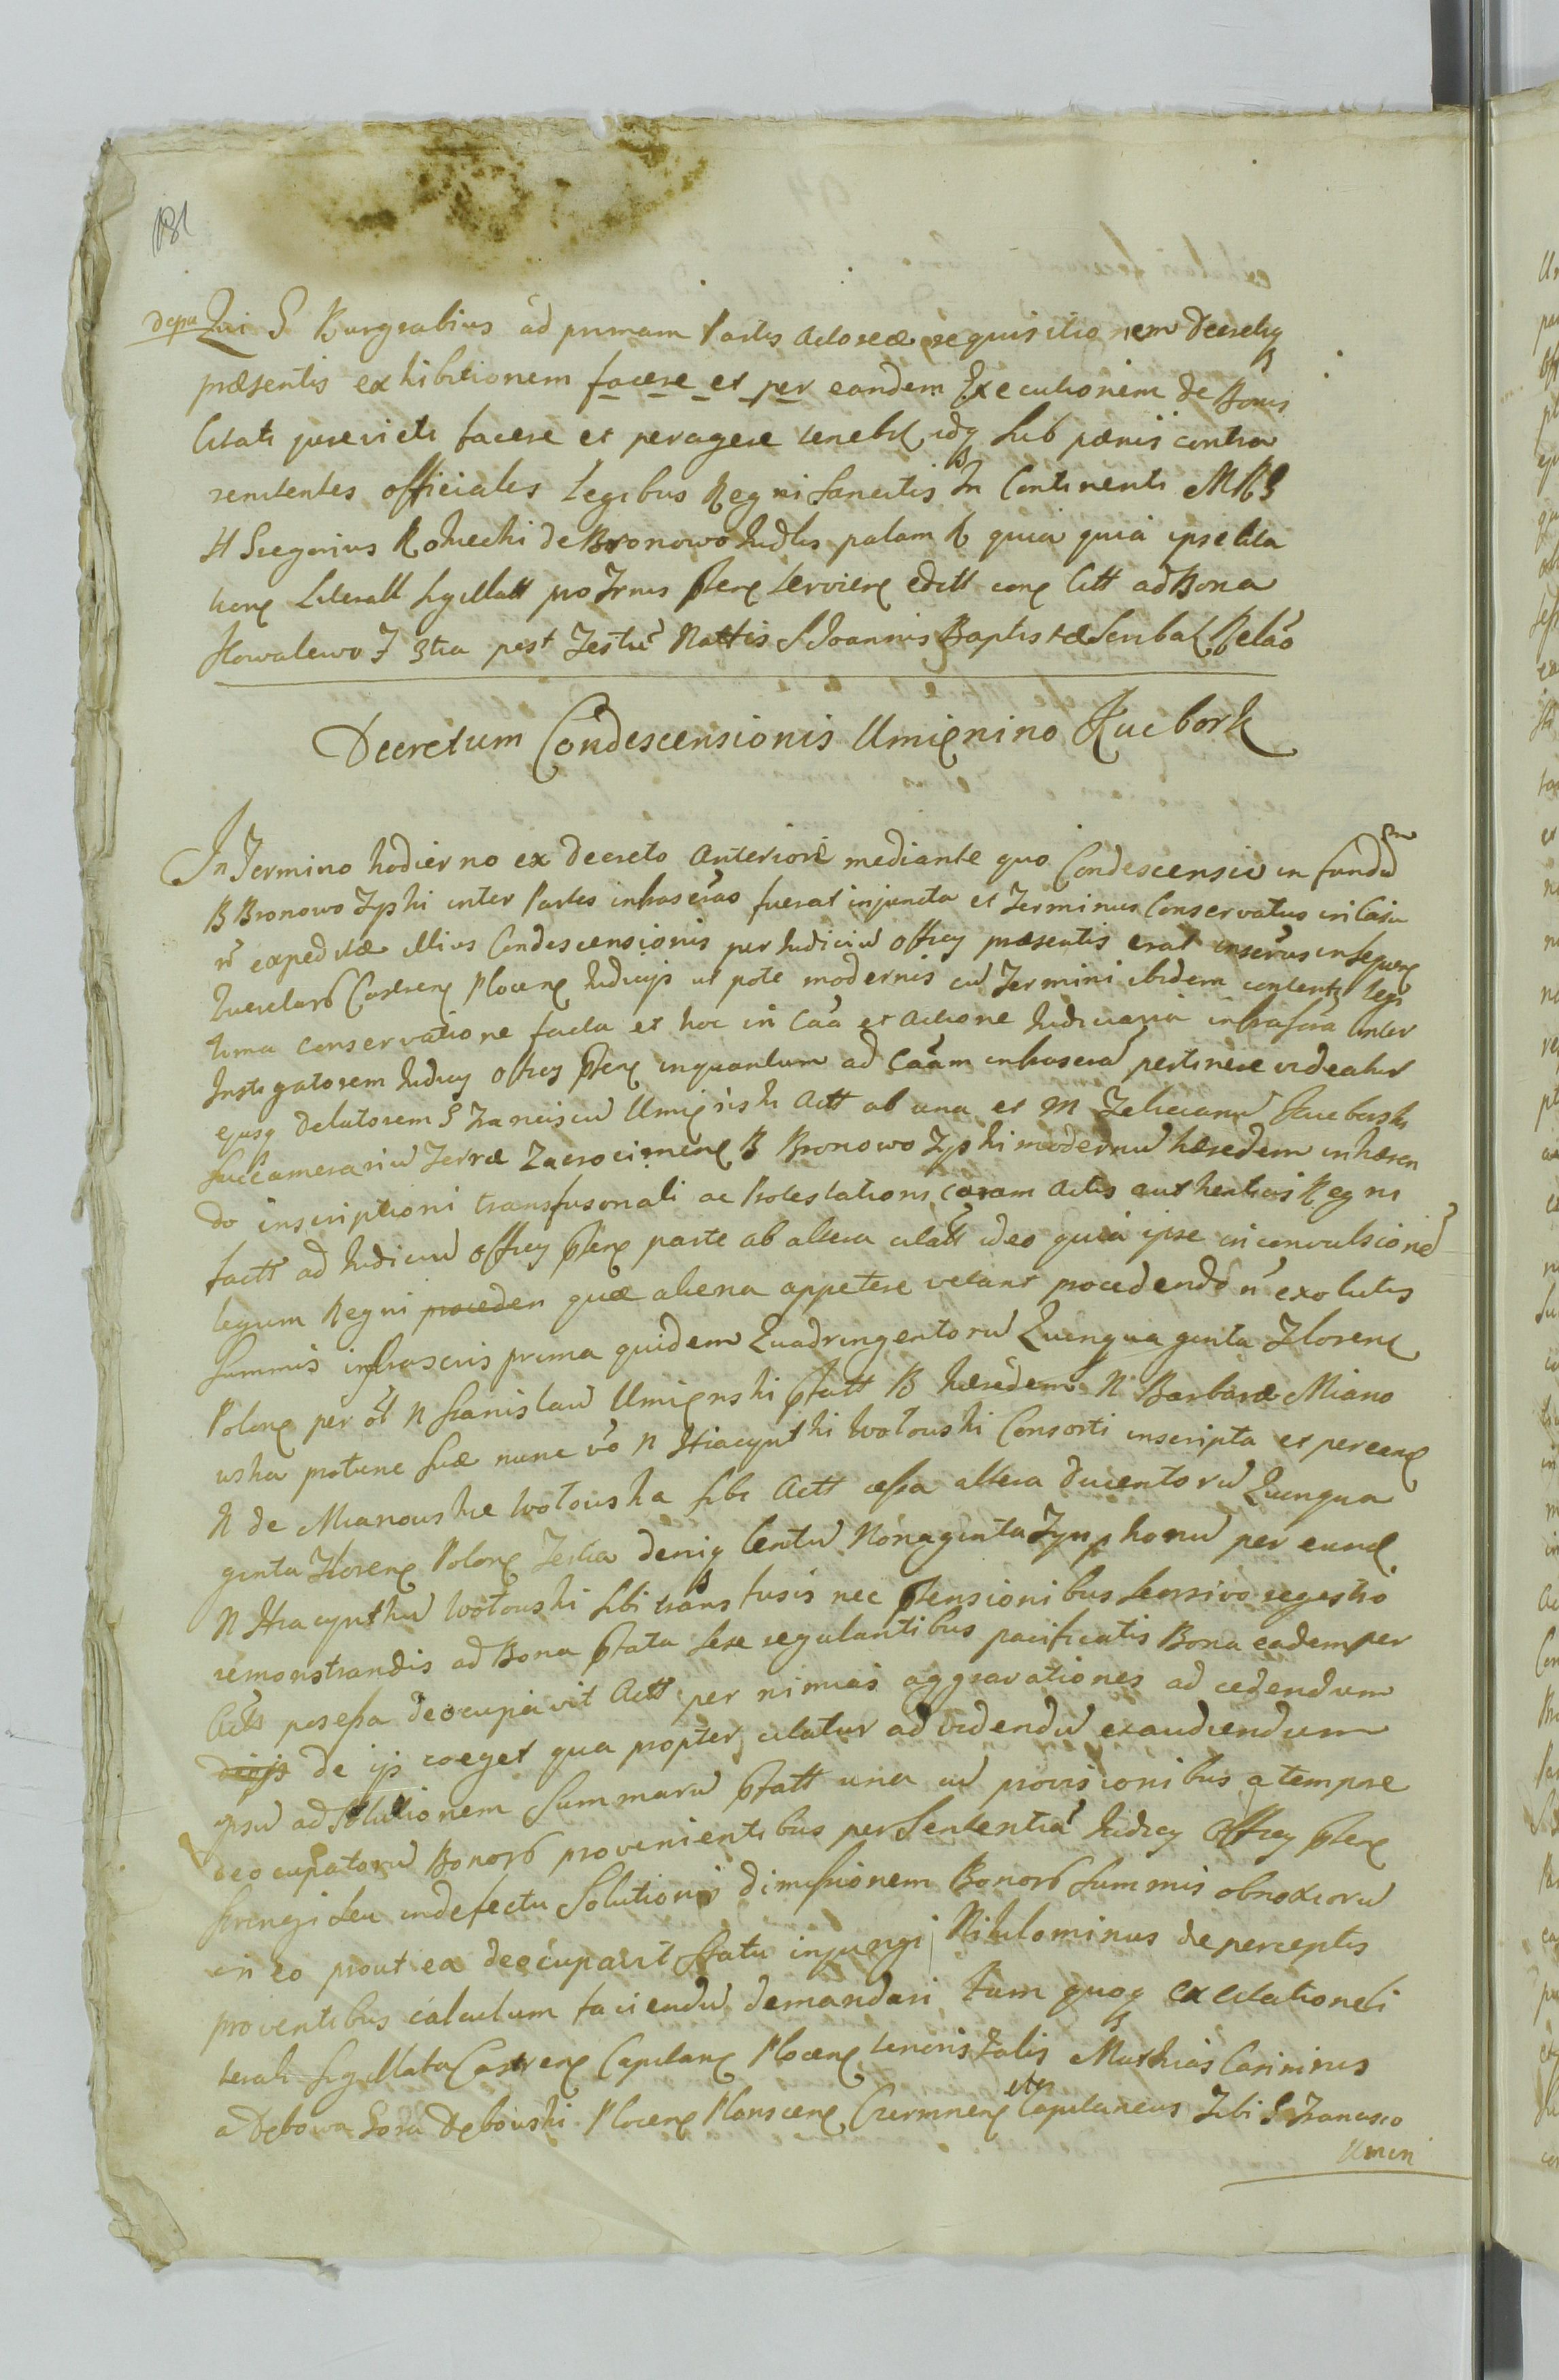 181
depu Qui G Burgrabius ad primam Partis Actoreæ requisitionem Decretiq
præsentis exhibitionem facere et per eandem Executionem de Bonis
Citati jurevicti facere et peragere tenebit idq sub pænis contra
renitentes officiales Legibus Regni sancitis In Continenti MRG
H Gregorius Rokicki de Bronowo Judlis palam R quia quia ipse Cita
tione Literall sigillatt pro Trnis pten servien editt con Citt ad Bona
Kowalewo F 3tia post Festū Nattis S Joannis Baptistæ Scribal Relāo
Decretum Condescensionis Umięnino Kucbork
In Termino hodierno ex Decreto Anteriori mediante quo Condescensio in fundū
B Bronowo Zyski inter Partes infrascrās fuerat injuncta et Terminus Conservatus in Casu
n̄ expeditæ illius Condescensionis per Judiciū Officy præsentis erat inscrūs in sequen
Querelarū Castren Plocen Judicijs ut pote modernis cū Termini ibidem contenti legi
tima conservatione facta et hoc in Caā et Actione Judiciaria infrascrā inter
Instigatorem Judicy Officy pten inquantum ad Caām infrascrā pertinere videatur
ejusq delatorem G Franciscū Umięński Actt ab una et M Felicianū Kucborski
Succamerariū Terræ Zacrocimen B Bronowo Zyski modernū hæredem inhæren
do inscriptioni transfusionali ac Protestationi coram Actis authenticis Regni
factt ad Judiciū Officy pten parte ab altera citatt ideo quia ipse in convulsionē
legum Regni proceden quæ aliena appetere vetant procedendo n̄ exolutis
summis infrascris prima quidem Quadringentorū Quinquaginta Floren
Polon per ol N Stanislaū Umięnski pfatt B hæredem N Barbaræ Miano
wska protunc suæ nunc vō N Hiacynthi Wołowski Consorti inscripta et per ean
N de Mianowskie Wołowska sibi Actt cessa altera ducentorū Quinqua
ginta Floren Polon Tertia deniq Centū Nonaginta Tynphonū per eund
N Hiacynthū Wołowski sibi transfusis nec ptensionibus seorsivo regestro
remonstrandis ad Bona pfata sese regulantibus pacificatis Bona eadem per
Actt posessa deocupavit Actt per nimias aggravationes ad cedendum
de ijs coeget qua propter citatur ad videndū et audiendum
ipsū ad solutionem summarū pfatt una cū provisionibus a tempore
deocupatorū Bonorū provenientibus per Sententiā Judicy Officy pten
stringi seu in defectu Solutionis dimissionem Bonorū summis obnoxiorū
in eo prout ea deocupavit statu injungi Nihilominus de perceptis
proventibus calculum faciendū demandari Tum quoq ex citatione li
terali sigillata Castren Capitan Plocen tenoris talis Mathias Casimirus
a Dębowa Gora Dębowski Plocen Plonscen Czermnen etc Capitaneus Tibi G Francisco
Umin